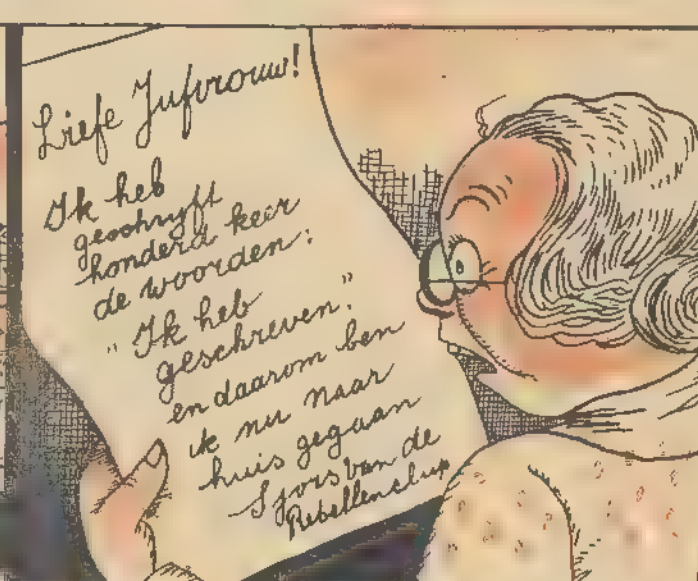 Liefe Jufvrouw!
Ik heb
geschrijft
honderd keer
de woorden:
"Ik heb
geschreven."
en daarom ben
ik nu naar
huis gegaan
Sjors van de
Rebellenclup